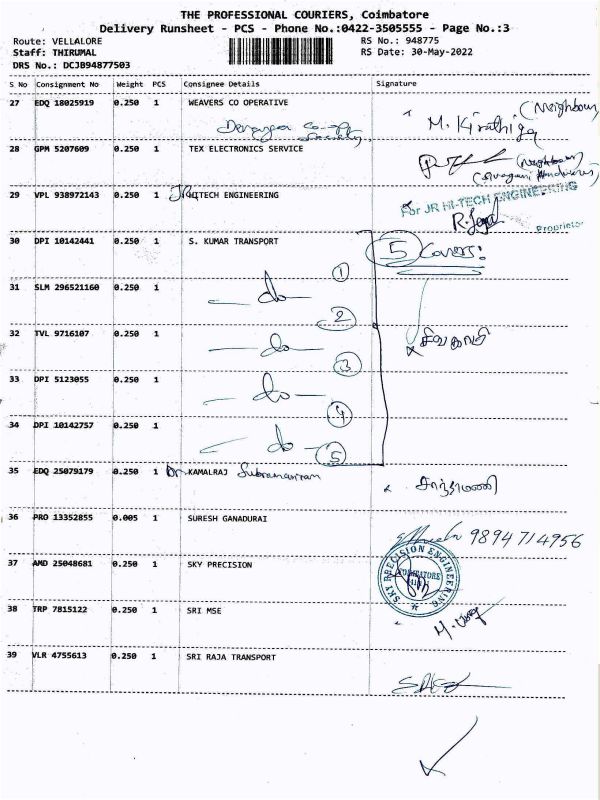 THE PROFESSIONAL COURIERS, Coimbatore
Delivery Runsheet - PCS - Phone No.:0422-3505555 - Page No.:3
Route: VELLALORE
RS No.: 948775
Staff: THIRUMAL
RS Date: 30-May-2022
DRS No.: DCJB94877503
S No Consignment No Weight PCS Consignee Details Signature
27 EDQ 18025919 0.250 1 WEAVERS CO OPERATIVE
(Neighbour)
Co-op Society
M. Kiruthiga
28 GPM 5207609 0.250 1 TEX ELECTRONICS SERVICE
(Neighbour)
29 VPL 938972143 0.250 1 JR HITECH ENGINEERING
For JR HI-TECH ENGINEERING
Proprietor
30 DPI 10142441 0.250 1 S. KUMAR TRANSPORT
5 Covers:
1
31 SLM 296521160 0.250 1
— do —
2
32 TVL 9716107 0.250 1
— do —
சிவகாமி
3
33 DPI 5123055 0.250 1
— do —
4
34 DPI 10142757 0.250 1
— do —
5
35 EDQ 25079179 0.250 1 Dr. KAMALRAJ Subramaniam
சாந்தாமணி
36 PRO 13352855 0.005 1 SURESH GANADURAI
9894714956
37 AMD 25048681 0.250 1 SKY PRECISION
SKY PRECISION ENGINEERING
COIMBATORE
38 TRP 7815122 0.250 1 SRI MSE
39 VLR 4755613 0.250 1 SRI RAJA TRANSPORT